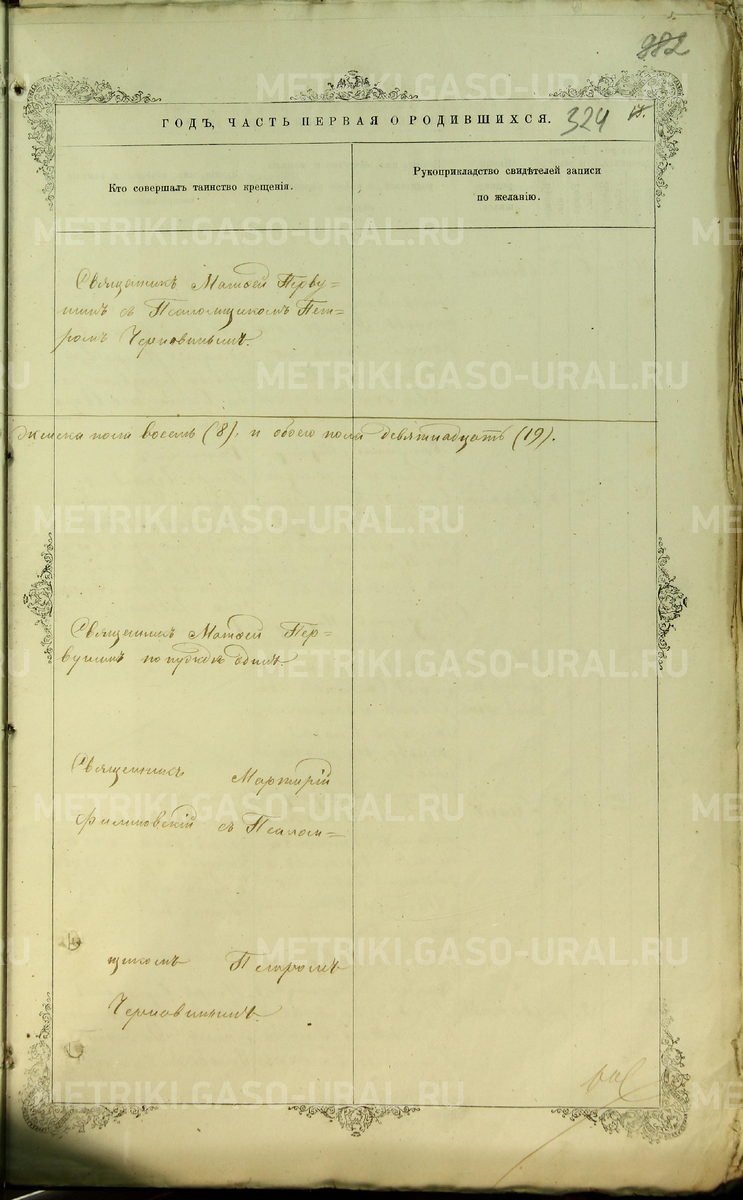 882
ГОДЪ, ЧАСТЬ ПЕРВАЯ О РОДИВШИХСЯ. 324
Кто совершалъ таинство крещенія.
Рукоприкладство свидѣтелей записи
по желанію.
Священникъ Матѳей Перву-
шинъ съ Псаломщикомъ Пет-
ромъ
женска пола восемь (8), и обоего пола девятнадцать (19).
Священникъ Матѳей Пер-
вушинъ по нуждѣ одинъ.
Священникъ Мартирій
Филиповскій съ Псалом-
щикомъ Петромъ
METRIKI.GASO-URAL.RU